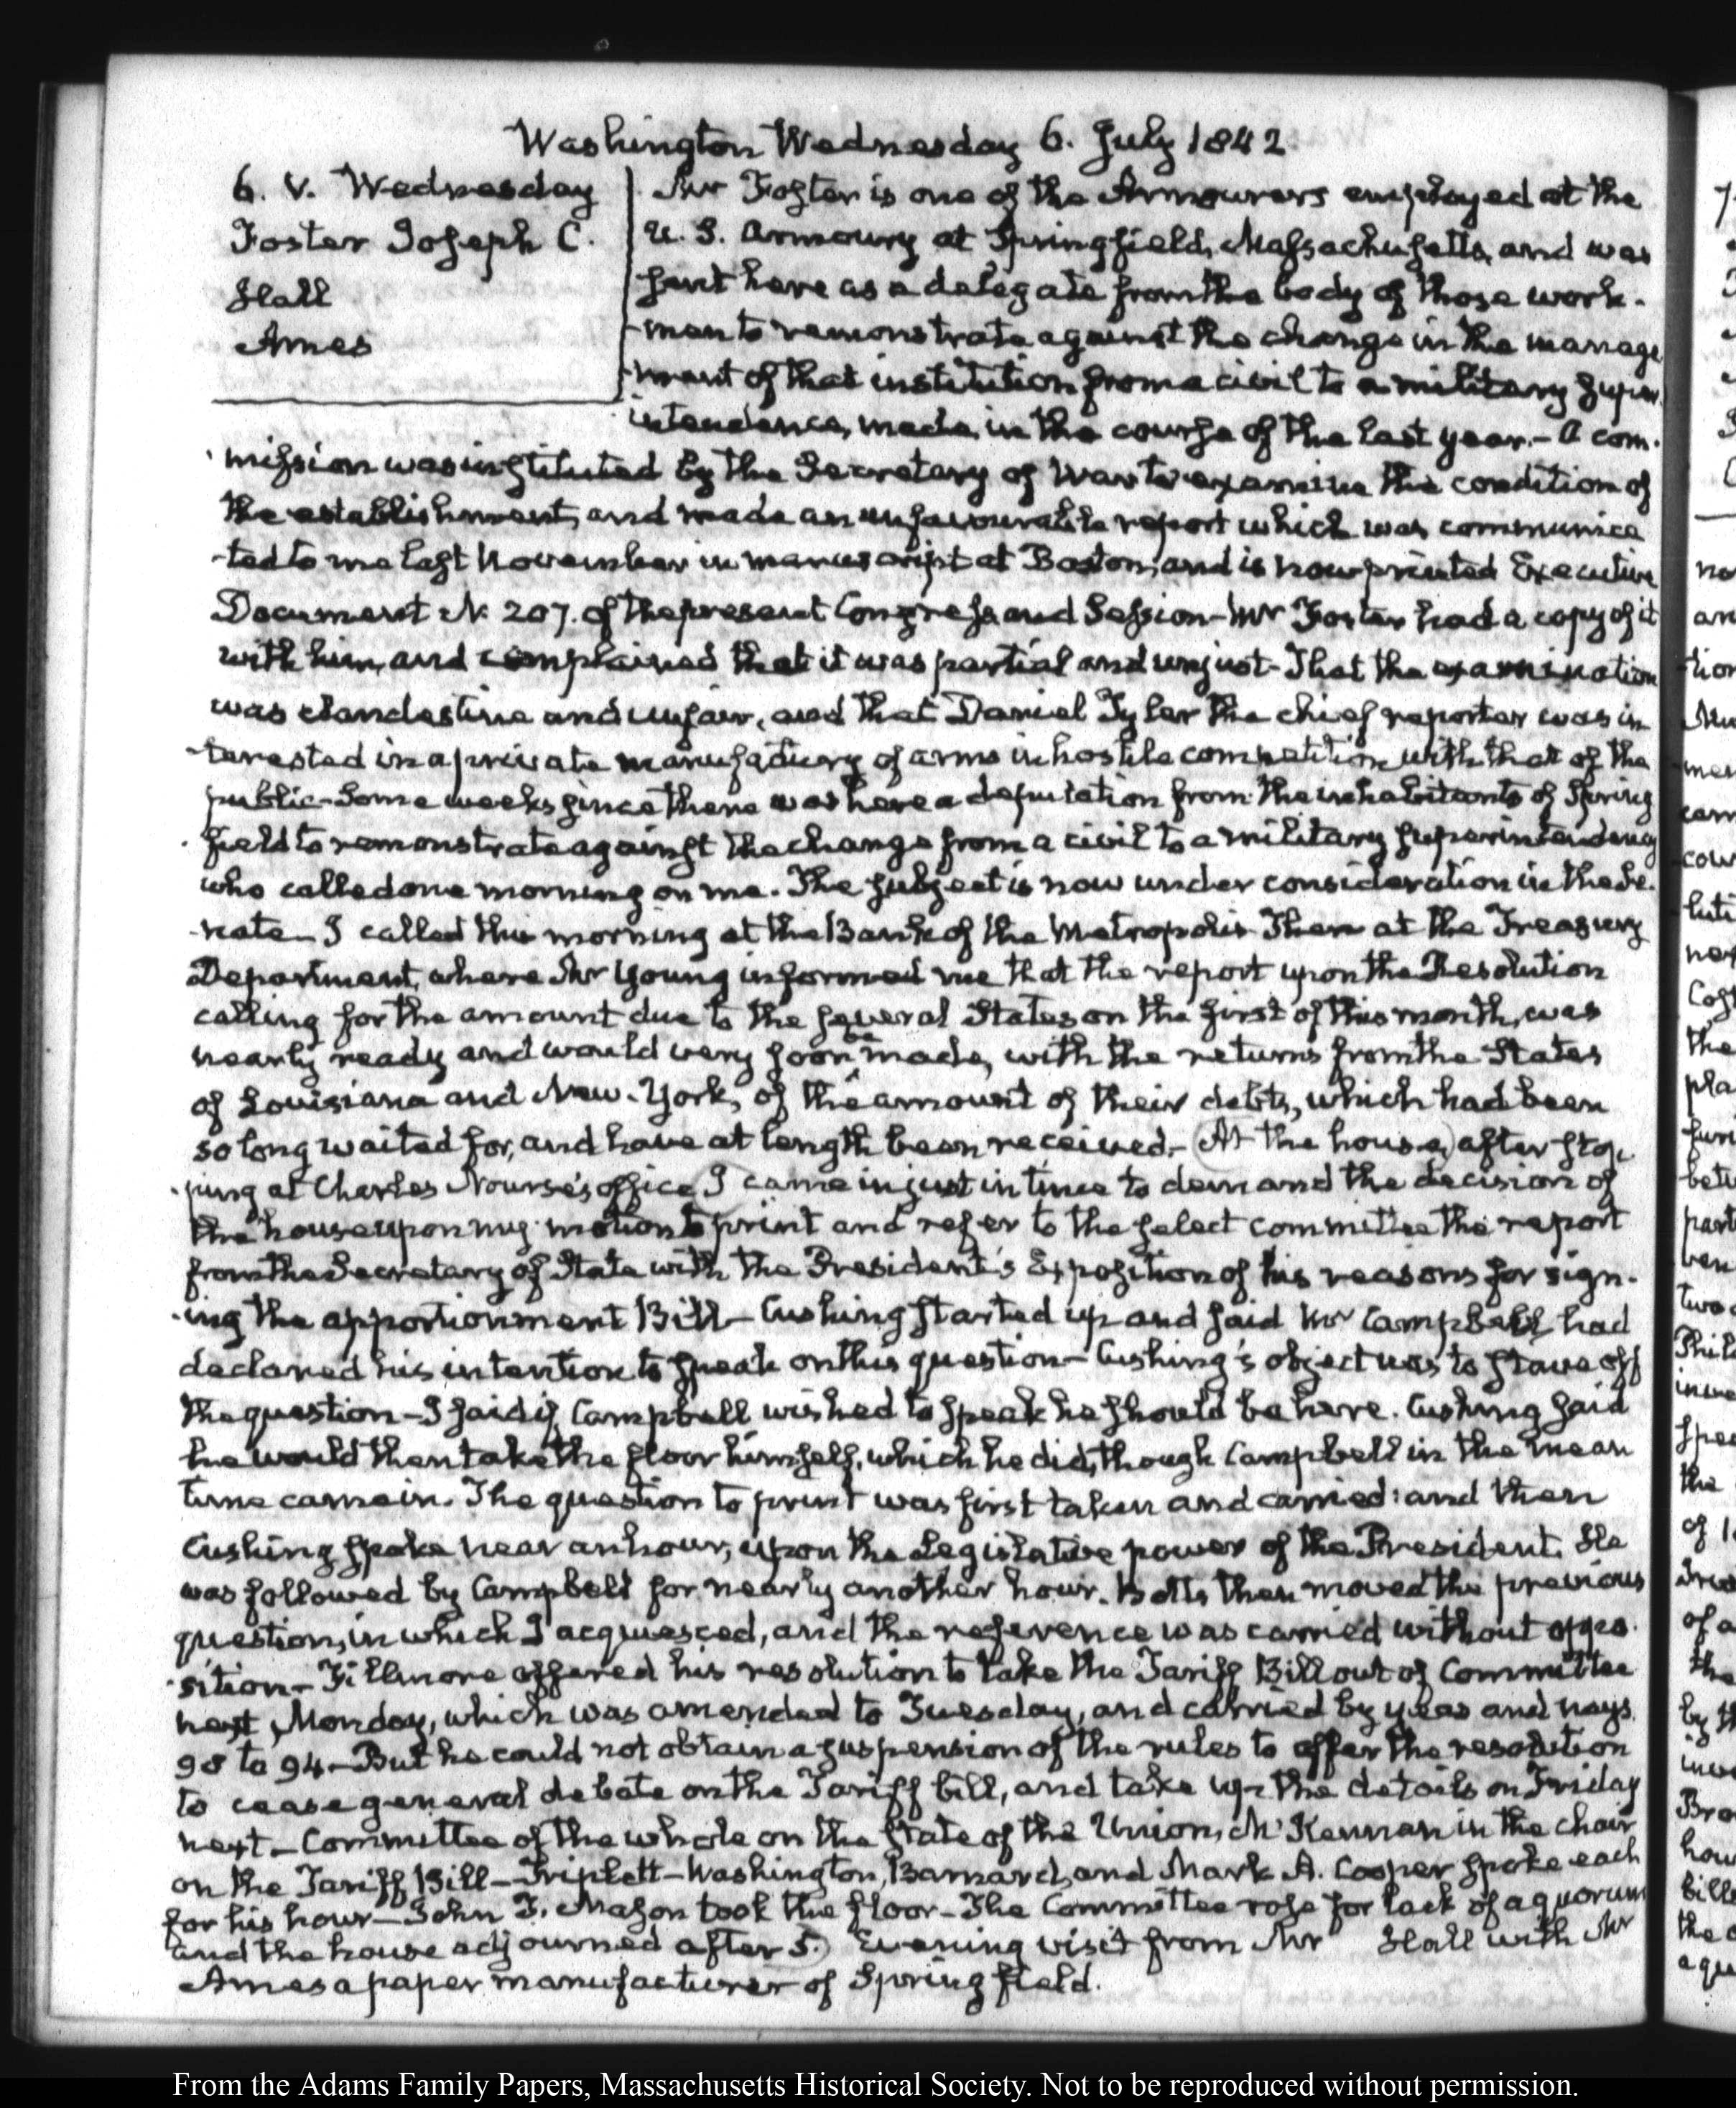 Washington Wednesday 6. July 1842.
6. V. Wednesday
Foster Joseph C.
Hall
Ames
Mr Foster is one of the Armourers employed at the
U. S. Armoury at Springfield, Massachusetts, and was
sent here as a delegate from the body of those work-
-men to remonstrate against the change in the manage
-ment of that institution from a civil to a military super
intendence, made, in the course of the last year.- A com-
mission was instituted by the Secretary of War to examine the condition of
the establishment, and made an unfavourable report which was communica
-ted to me last November in manuscript at Boston, and is now printed Executive
Document N. 207. of the present Congress and Session- Mr Foster had a copy of it
with him, and complained that it was partial and unjust- That the examination
was clandestine and unfair, and that Daniel Tyler the chief reporter was in
-terested in a private manufactory of arms in hostile competition with that of the
public- Some weeks since there was here a deputation from the inhabitants of Spring
-field to remonstrate against the change from a civil to a military superintendency
who called one morning on me. The subject is now under consideration in the Se-
-nate- I called this morning at the Bank of the Metropolis Then at the Treasury
Department, where Mr Young informed me that the report upon the Resolution
calling for the amount due to the several States on the first of this month, was
nearly ready and would very soon be made, with the returns from the States
of Louisiana and New-York, of the amount of their debts, which had been
so long waited for, and have at length been received.- (At the house) after stop-
-ping at Charles Nourse's office, I came in just in time to demand the decision of
the house upon my motion to print and refer to the select committee the report
from the Secretary of State with the President's Exposition of his reasons for sign-
-ing the apportionment Bill- Cushing started up and said Mr Campbell had
declared his intention to speak on this question- Cushing's object was to stave off
the question- I said if Campbell wished to speak he should be here. Cushing said
he would then take the floor himself, which he did, though Campbell in the mean
time came in. The question to print was first taken and carried: and then
Cushing spoke near an hour, upon the Legislative power of the President. He
was followed by Campbell for nearly another hour. Botts then moved the previous
question, in which I acquiesced, and the reference was carried without oppo-
-sition- Fillmore offered his resolution to take the Tariff Bill out of Committee
next Monday, which was amended to Tuesday, and carried by yeas and nays.
98 to 94- But he could not obtain a suspension of the rules to offer the resolution
to cease general debate on the Tariff bill, and take up the details on Friday
next- Committee of the whole on the state of the Union, McKennan in the chair
on the Tariff Bill- Triplett- Washington, Barnard, and Mark A. Cooper spoke each
for his hour- John T. Mason took the floor- The Committee rose for lack of a quorum
and the house adjourned after 5.) Evening visit from Mr Hall with Mr
Ames a paper manufacturer of Springfield.
From the Adams Family Papers, Massachusetts Historical Society. Not to be reproduced without permission.